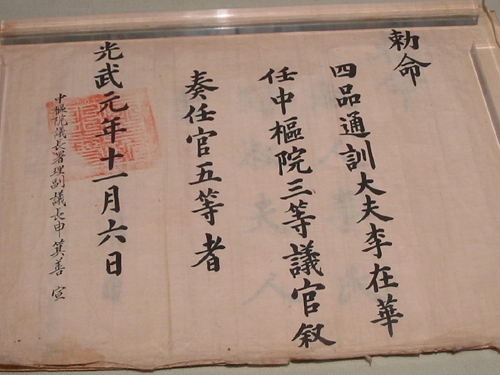 勅命
四品通訓大夫李在華
任中樞院三等議官敘
奏任官五等者
光武元年十一月六日
中樞院議長署理副議長申箕善 宣